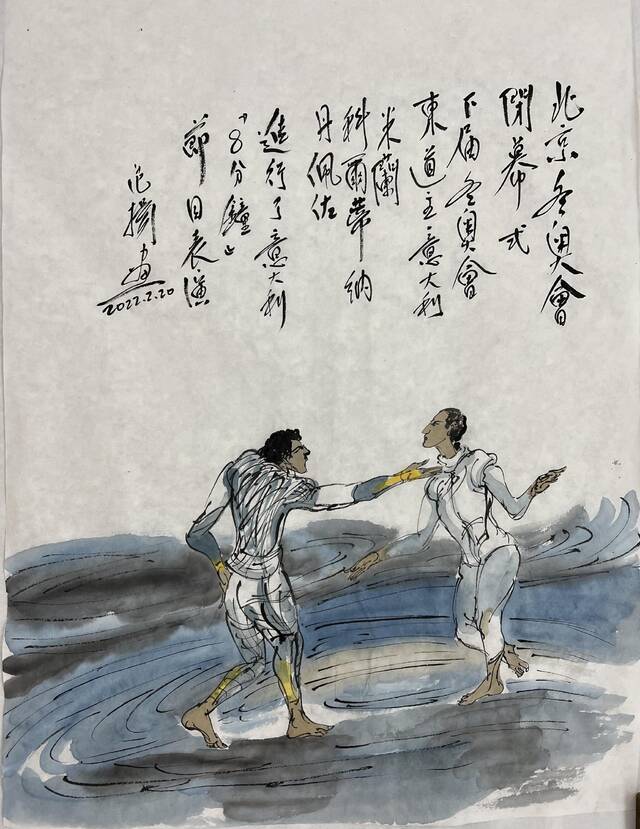 北京冬奧會
閉幕式
下届冬奧會
東道主意大利
米蘭
科爾蒂納
丹佩佐
進行了意大利
“8分鐘”
節目表演
范揚畫
2022.2.20